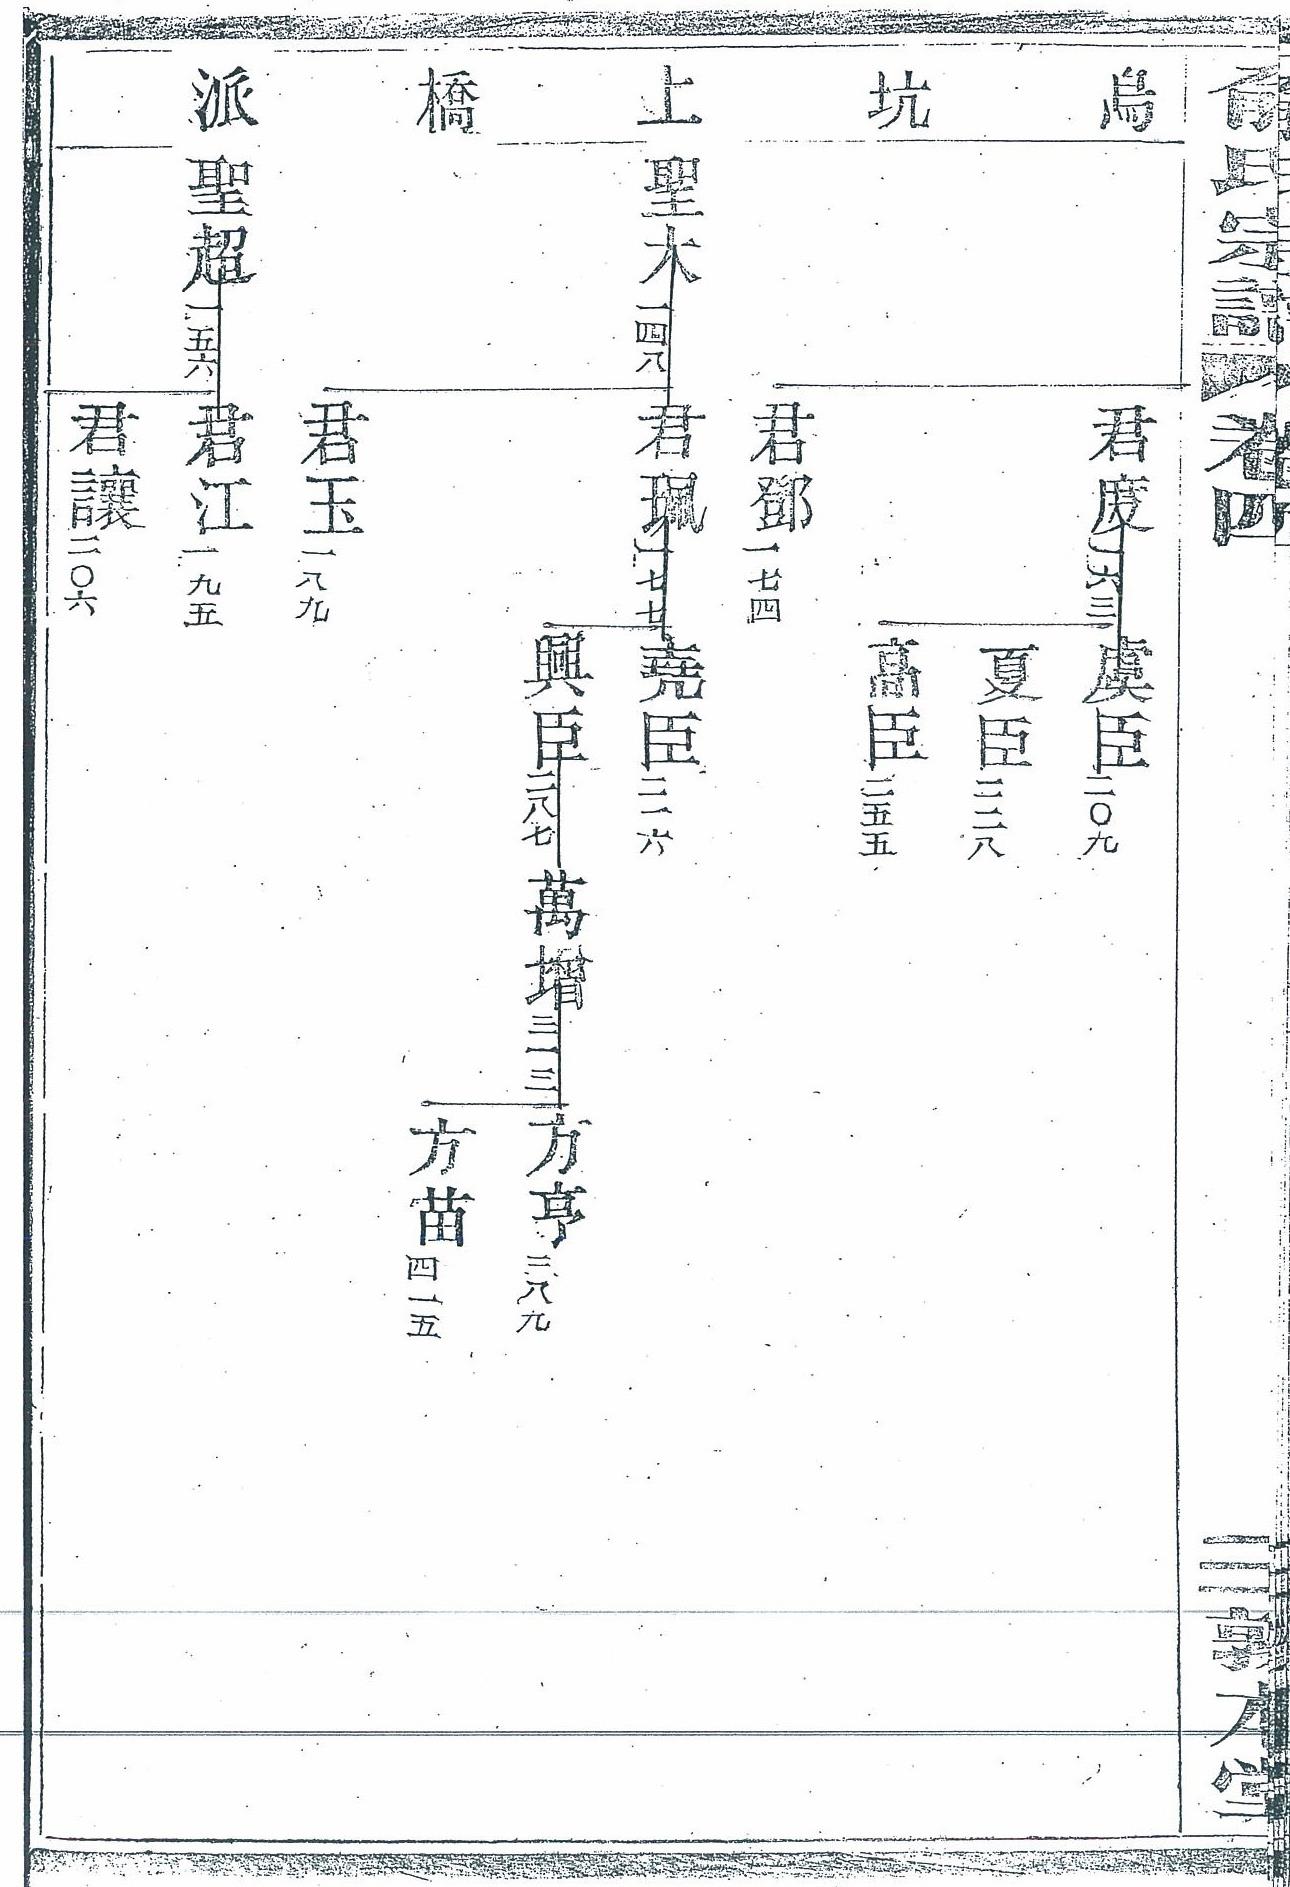 俞氏宗譜 卷四
三 敦本堂
烏坑上橋派
君度 一六三
虞臣 二〇九
夏臣 二二八
高臣 二五五
君鄧 一七四
聖木 一四八
君珮 一七七
堯臣 二一六
興臣 二八七
萬增 三一三
方亨 三八九
方苗 四一五
君玉 一八九
聖超 一五六
君江 一九五
君讓 二〇六